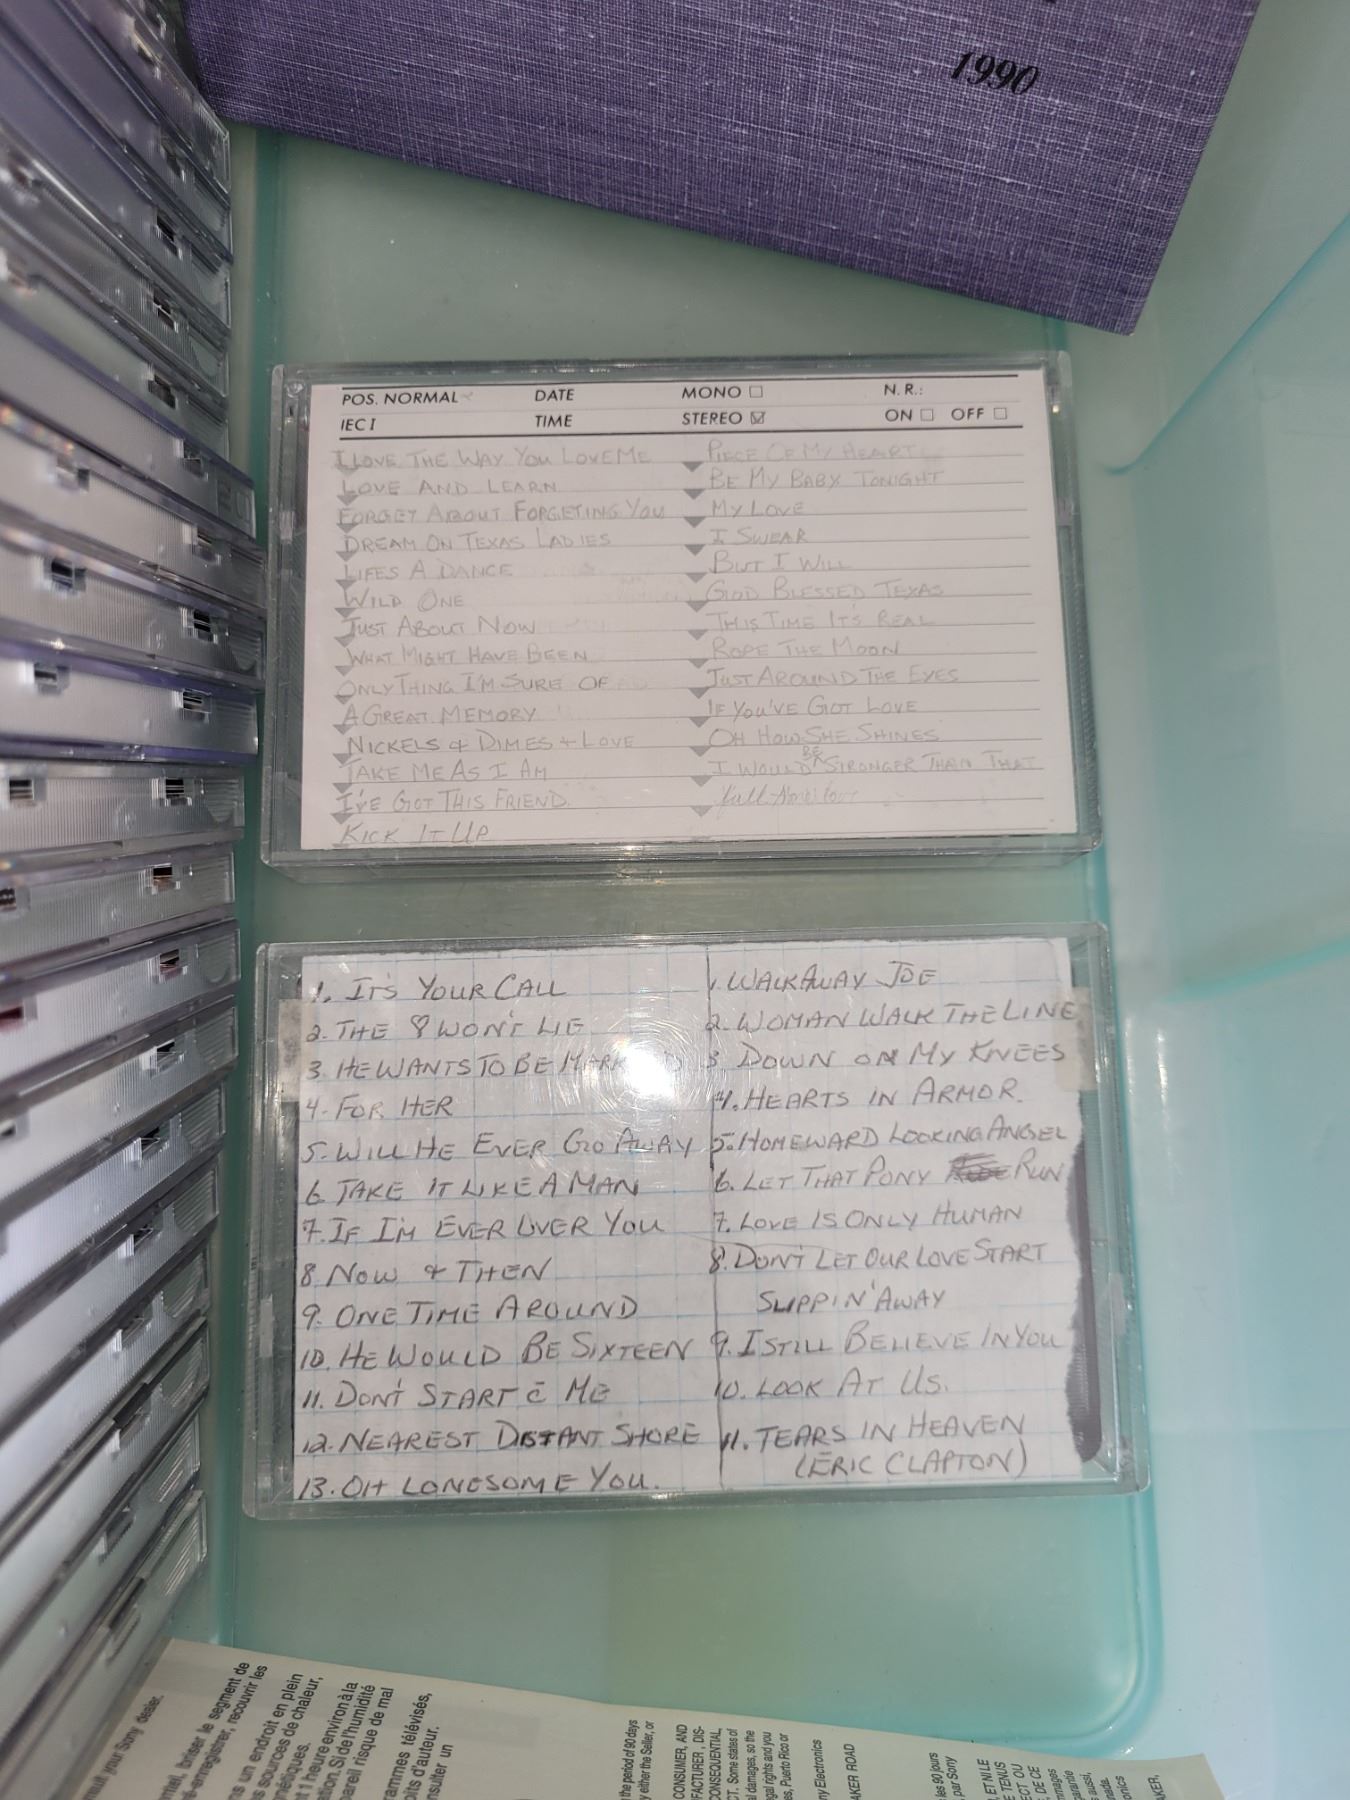 1990
POS. NORMAL DATE MONO ☐ N.R.:
IEC I TIME STEREO ☑ ON ☐ OFF ☐
I LOVE THE WAY YOU LOVE ME
LOVE AND LEARN
FORGET ABOUT FORGETING YOU
DREAM ON TEXAS LADIES
LIFES A DANCE
WILD ONE
JUST ABOUT NOW
WHAT MIGHT HAVE BEEN
ONLY THING I'M SURE OF
A GREAT MEMORY
NICKELS + DIMES + LOVE
TAKE ME AS I AM
I'VE GOT THIS FRIEND
KICK IT UP
PIECE OF MY HEART
BE MY BABY TONIGHT
MY LOVE
I SWEAR
BUT I WILL
GOD BLESSED TEXAS
THIS TIME IT'S REAL
ROPE THE MOON
JUST AROUND THE EYES
IF YOU'VE GOT LOVE
OH HOW SHE SHINES
I WOULD BE STRONGER THAN THAT
love
1. IT'S YOUR CALL
2. THE WON'T LIE
3. HE WANTS TO BE
4. FOR HER
5. WILL HE EVER GO AWAY
6. TAKE IT LIKE A MAN
7. IF I'M EVER OVER YOU
8. NOW + THEN
9. ONE TIME AROUND
10. HE WOULD BE SIXTEEN
11. DON'T START C̄ ME
12. NEAREST DISTANT SHORE
13. OH LONESOME YOU.
1. WALK AWAY JOE
2. WOMAN WALK THE LINE
3 DOWN ON MY KNEES
4. HEARTS IN ARMOR.
5. HOMEWARD LOOKING ANGEL
6. LET THAT PONY RUN
7. LOVE IS ONLY HUMAN
8. DON'T LET OUR LOVE START
SLIPPIN' AWAY
9. I STILL BELIEVE IN YOU
10. LOOK AT US.
11. TEARS IN HEAVEN
(ERIC CLAPTON)
your Sony dealer.
briser le segment de
recouvrir les
un endroit en plein
sources de chaleur,
1 heure environ à la
Si de l'humidité
risque de mal
télévisés,
d'auteur.
un
the period of 90 days
either the Seller, or
CONSUMER, AND
CONSEQUENTIAL,
Some states of
damages, so the
rights and you
Puerto Rico or
Electronics
ROAD
les 90 jours
par Sony